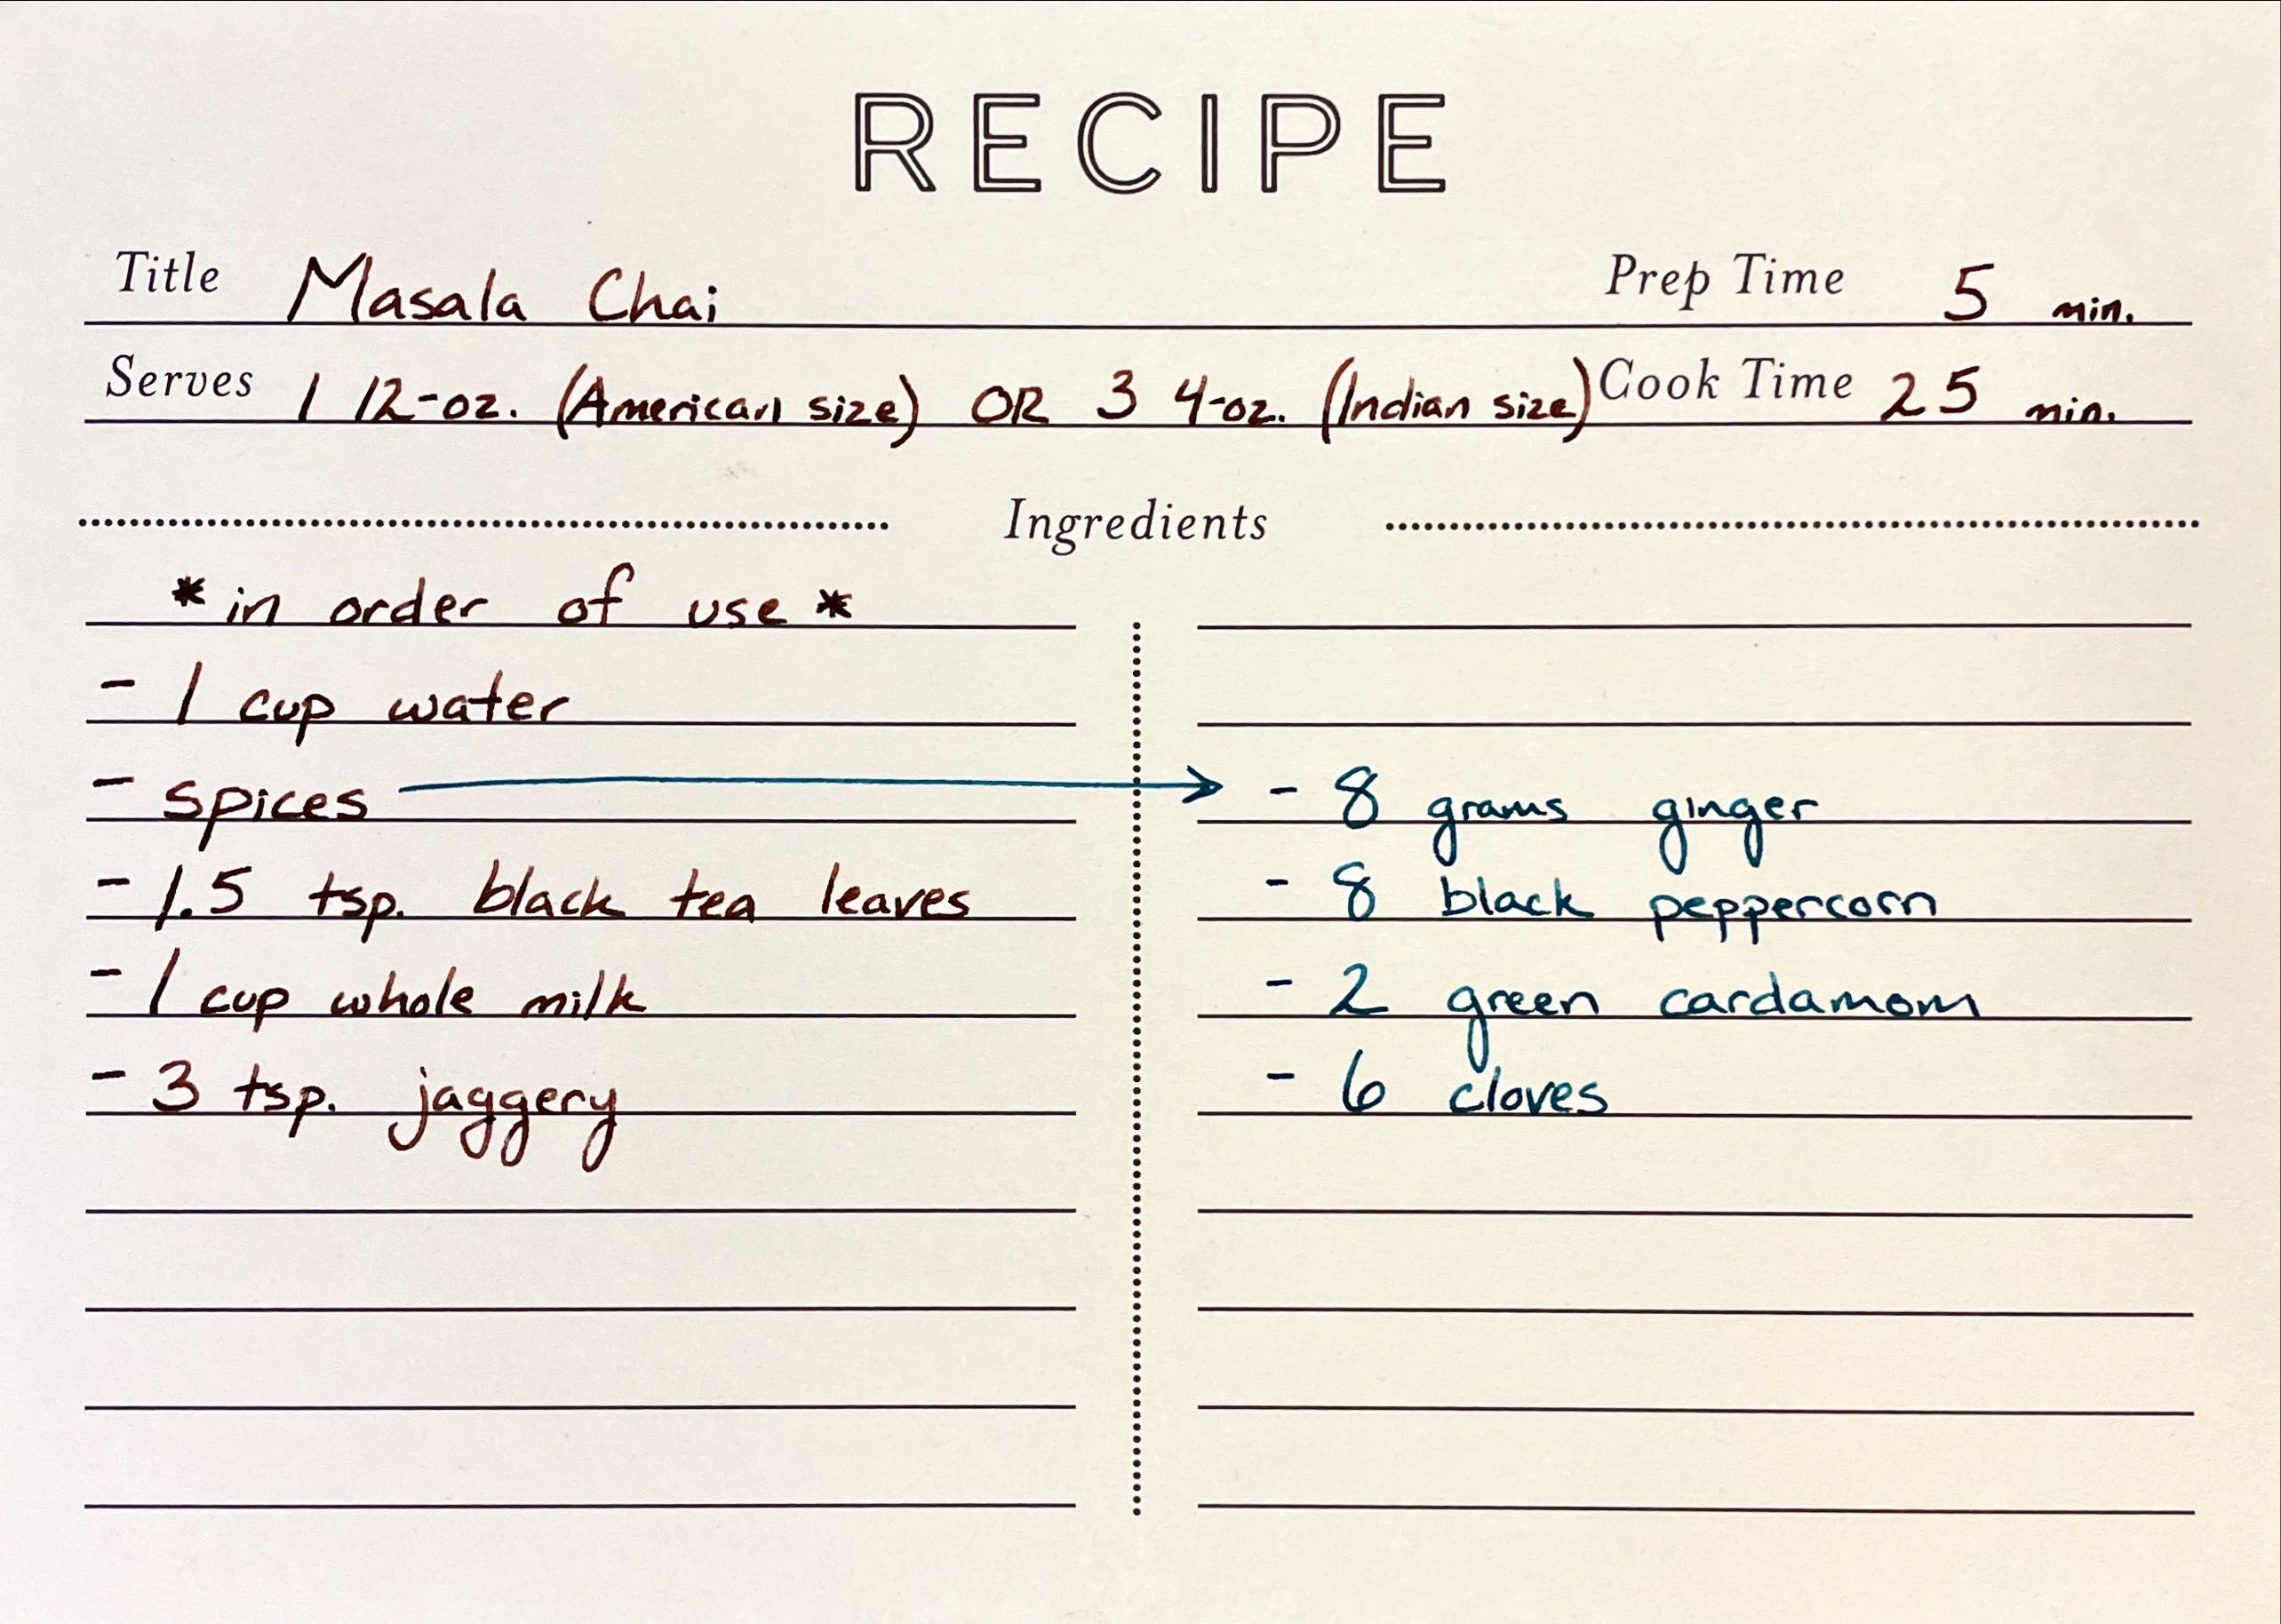 RECIPE
Title Masala Chai Prep Time 5 min.
Serves 1 12-oz. (American size) OR 3 4-oz. (Indian size) Cook Time 25 min.
Ingredients
*in order of use*
- 1 cup water
- spices →
- 1.5 tsp. black tea leaves
- 1 cup whole milk
- 3 tsp. jaggery
- 8 grams ginger
- 8 black peppercorn
- 2 green cardamom
- 6 cloves